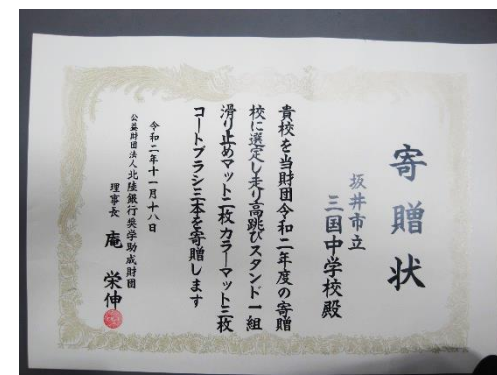 寄贈状
坂井市立
三国中学校殿
貴校を当財団令和二年度の寄贈
校に選定し走り高跳びスタンド一組
滑り止めマット二枚カラーマット三枚
コートブラシ三本を寄贈します
令和二年十一月十八日
公益財団法人北陸銀行奨学助成財団
理事長 庵 栄伸